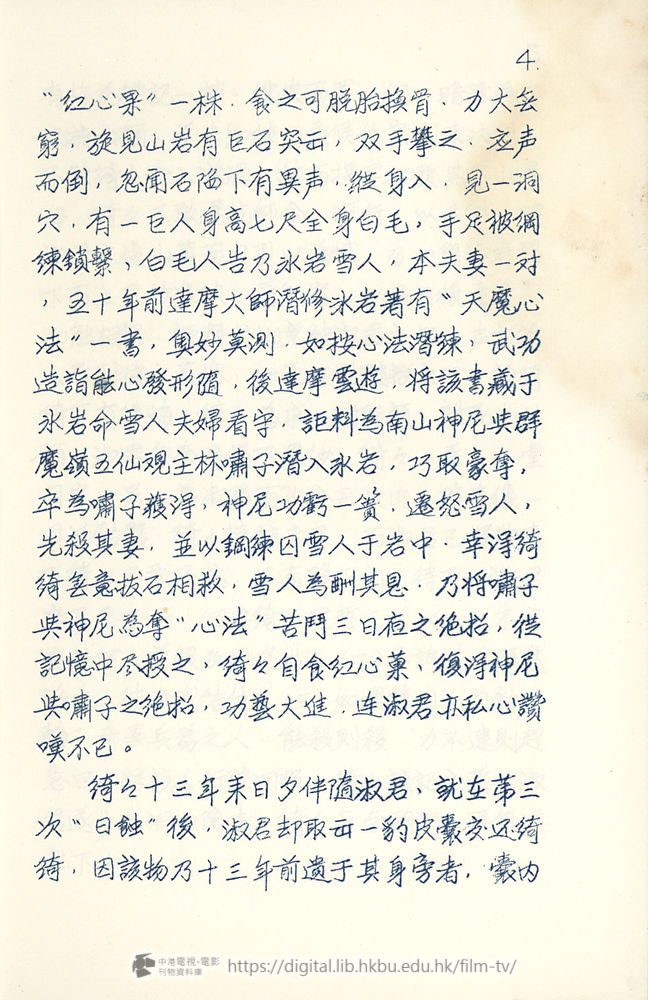 4.
“红心果”一株．食之可脱胎換骨．力大無
窮，旋見山岩有巨石突击，双手攀之．应声
而倒，忽聞石隙下有異声，縱身入．見一洞
穴．有一巨人身高七尺全身白毛，手足被鋼
練鎖繫，白毛人告乃氷岩雪人，本夫妻一对
，五十年前達摩大師潛修氷岩著有“天魔心
法”一書，奧妙莫測．如按心法潛練，武功
造詣能心發形隨．後達摩雲遊．将該書藏于
氷岩命雪人夫婦看守．詎料為南山神尼共群
魔嶺五仙观主林嘯子潛入氷岩，巧取豪奪，
卒為嘯子獲得，神尼功虧一簣．遷怒雪人，
先殺其妻．並以鋼練囚雪人于岩中．幸淂綺
綺無意拔石相救．雪人為酬其恩．乃将嘯子
共神尼為奪“心法”苦鬥三日夜之绝招，從
記憶中尽授之，綺々自食红心菓，復淂神尼
共嘯子之绝招，功藝大進．连淑君亦私心讚
嘆不已。
綺々十三年来日夕伴隨淑君，就在第三
次“日蝕”後，淑君却取击一豹皮囊交还綺
綺，因該物乃十三年前遗于其身旁者，囊内
中港電視-電影
刊物資料庫
https://digital.lib.hkbu.edu.hk/film-tv/